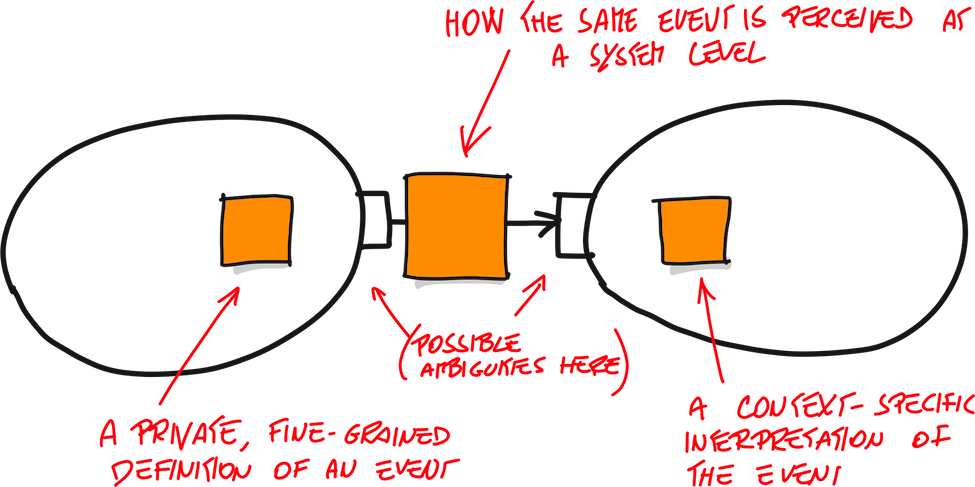 HOW THE SAME EVENT IS PERCEIVED AT
A SYSTEM LEVEL
(POSSIBLE
AMBIGUITIES HERE)
A PRIVATE, FINE-GRAINED
DEFINITION OF AN EVENT
A CONTEXT-SPECIFIC
INTERPRETATION OF
THE EVENT